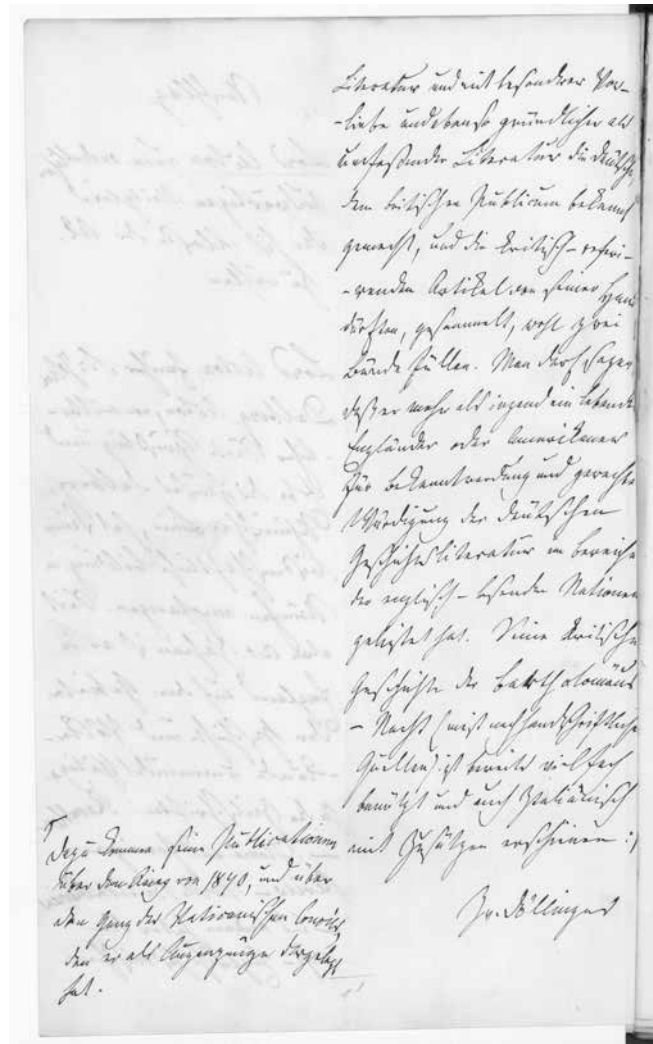 Literatur und mit besondrer Vor-
-liebe und ebenso gründlicher als
umfassender Literatur die deutsche,
dem britischen Publicum bekannt
gemacht, und die kritisch-referi-
-renden Artikel von seiner Hand
dürften, gesammelt, wohl zwei
Bände füllen. Man darf sagen,
daß er mehr als irgend ein lebender
Engländer oder Amerikaner
für Bekanntwerdung und gerechte
Würdigung der deutschen
Geschichtsliteratur im Bereiche
der englisch-lesenden Nationen
geleistet hat. Seine kritische
Geschichte der Bartholomäus
-Nacht (meist nach handschriftlichen
Quellen) ist bereits vielfach
benützt und auch Italiänisch
mit Zusätzen erschienen :/
J. v. Döllinger
Dazu kommen seine Publicationen
über den Krieg von 1870, und über
den Gang des Vaticanischen Concils,
den er als Augenzeuge dargelegt
hat.